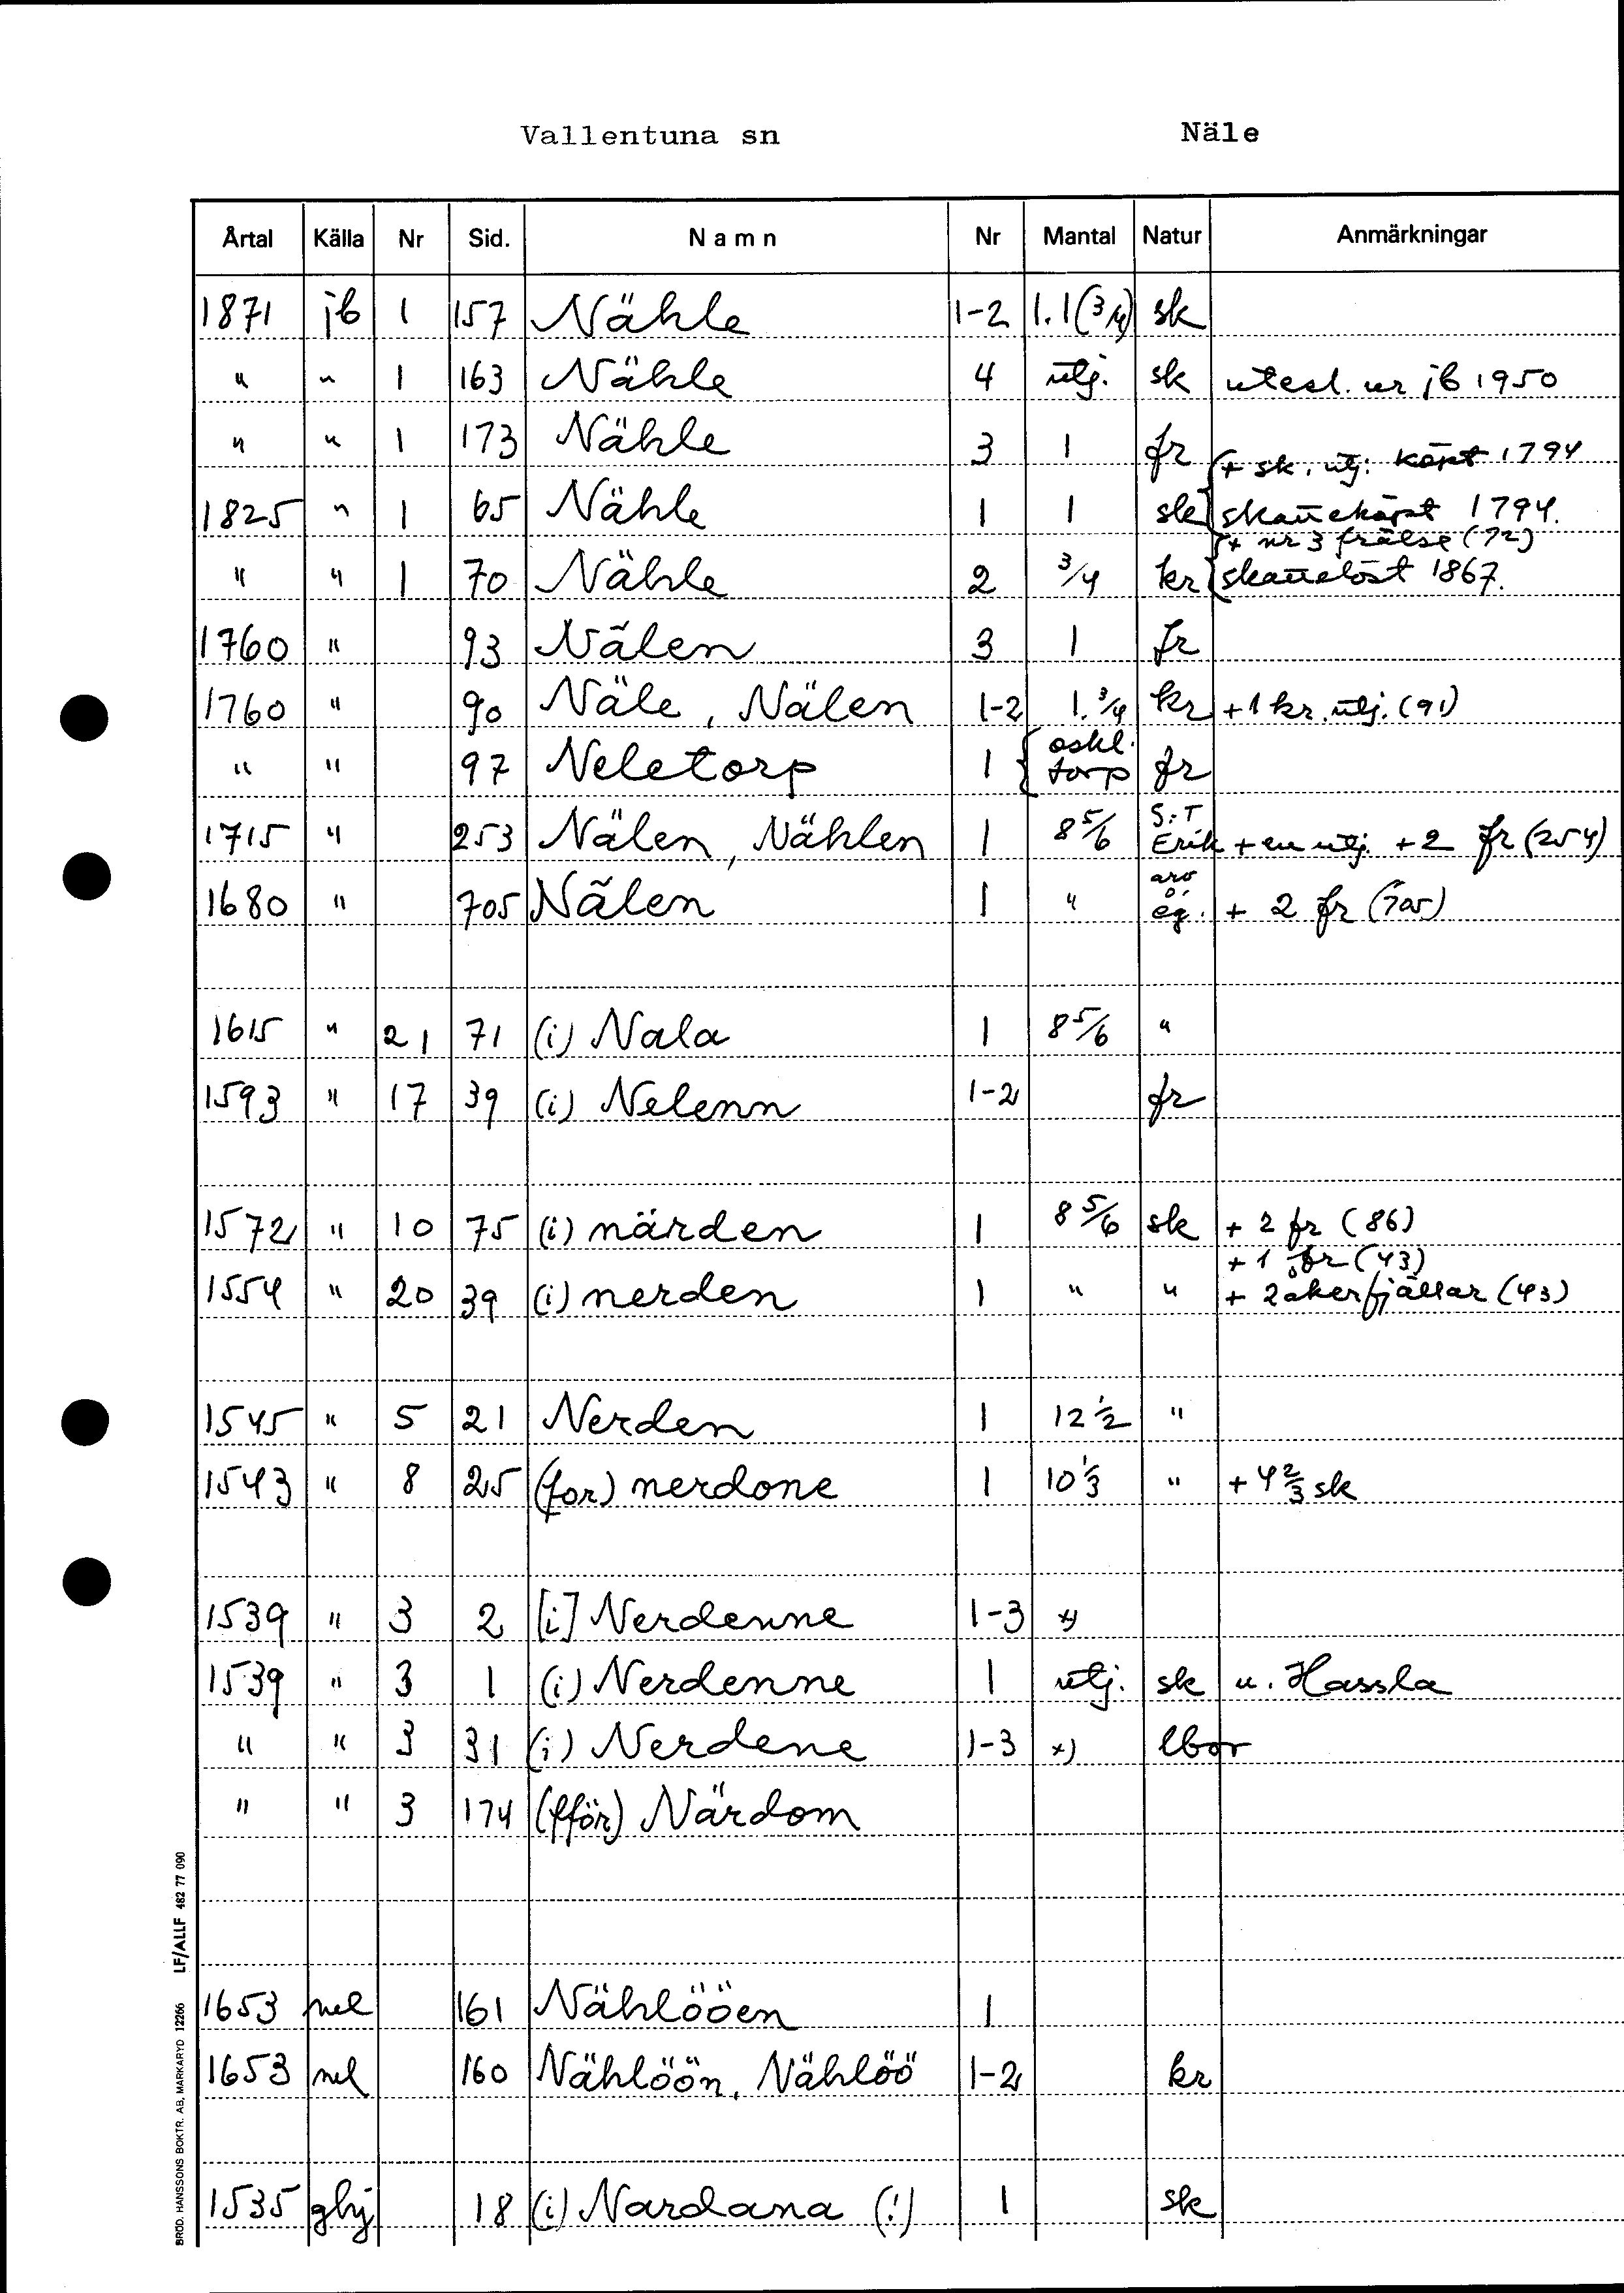 Vallentuna sn Näle
Årtal Källa Nr Sid. Namn Nr Mantal Natur Anmärkningar
1871 jb 1 157 Nähle 1-2 1.1(3/4) sk
" " 1 163 Nähle 4 utj. sk utesl. ur jb 1950
" " 1 173 Nähle 3 1 fr
+ sk. utj. köpt 1794
1825 " 1 65 Nähle 1 1 sk skatteköpt 1794.
+ nr 3 frälse (72)
" " 1 70 Nähle 2 3/4 kr skattelöst 1867.
1760 " 93 Nälen 3 1 fr
1760 " 90 Näle, Nälen 1-2 1.3/4 kr +1 kr. utj. (91)
" " 97 Neletorp 1 { oskl. torp fr
1715 " 253 Nälen, Nählen 1 8 5/6 S:T Erik + en utj. + 2 fr (254)
1680 " 705 Nälen 1 " arv o. eg. + 2 fr (705)
1615 " 21 71 (i) Nala 1 8 5/6 "
1593 " 17 39 (i) Nelenn 1-2 fr
1572 " 10 75 (i) närden 1 8 5/6 sk + 2 fr (86)
+ 1 fr (43)
1554 " 20 39 (i) nerden 1 " " + 2 åkerfjällar (43)
1545 " 5 21 Nerden 1 12 1/2 "
1543 " 8 25 (for) nerdone 1 10 1/3 " + 4 2/3 sk
1539 " 3 2 [i] Nerdenne 1-3 x)
1539 " 3 1 (i) Nerdenne 1 utj. sk u. Hassla
" " 3 31 (i) Nerdene 1-3 x) lbor
" " 3 174 (fför) Närdom
1653 mel 161 Nählööen 1
1653 mel 160 Nählöön, Nählöö 1-2 kr
1535 ghj 18 (i) Nardana (!) 1 sk
BRÖD. HANSSONS BOKTR. AB, MARKARYD 12266 LF/ALLF 462 77 090